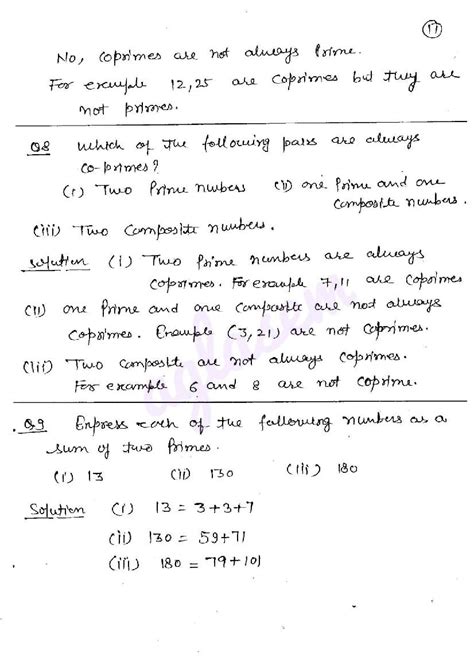 11
No, coprimes are not always Prime.
For example 12,25 are coprimes but they are
not primes.
Q8 Which of the following pairs are always
co-primes?
(i) Two Prime numbers (ii) one Prime and one
composite numbers.
(iii) Two composite numbers.
Solution (i) Two Prime numbers are always
coprimes. For example 7,11 are coprimes
(ii) one Prime and one composite are not always
coprimes. Example (3,21) are not coprimes.
(iii) Two composite are not always coprimes.
For example 6 and 8 are not coprime.
Q9 Express each of the following numbers as a
sum of two Primes.
(i) 13 (ii) 130 (iii) 180
Solution (i) 13 = 3+3+7
(ii) 130 = 59+71
(iii) 180 = 79+101